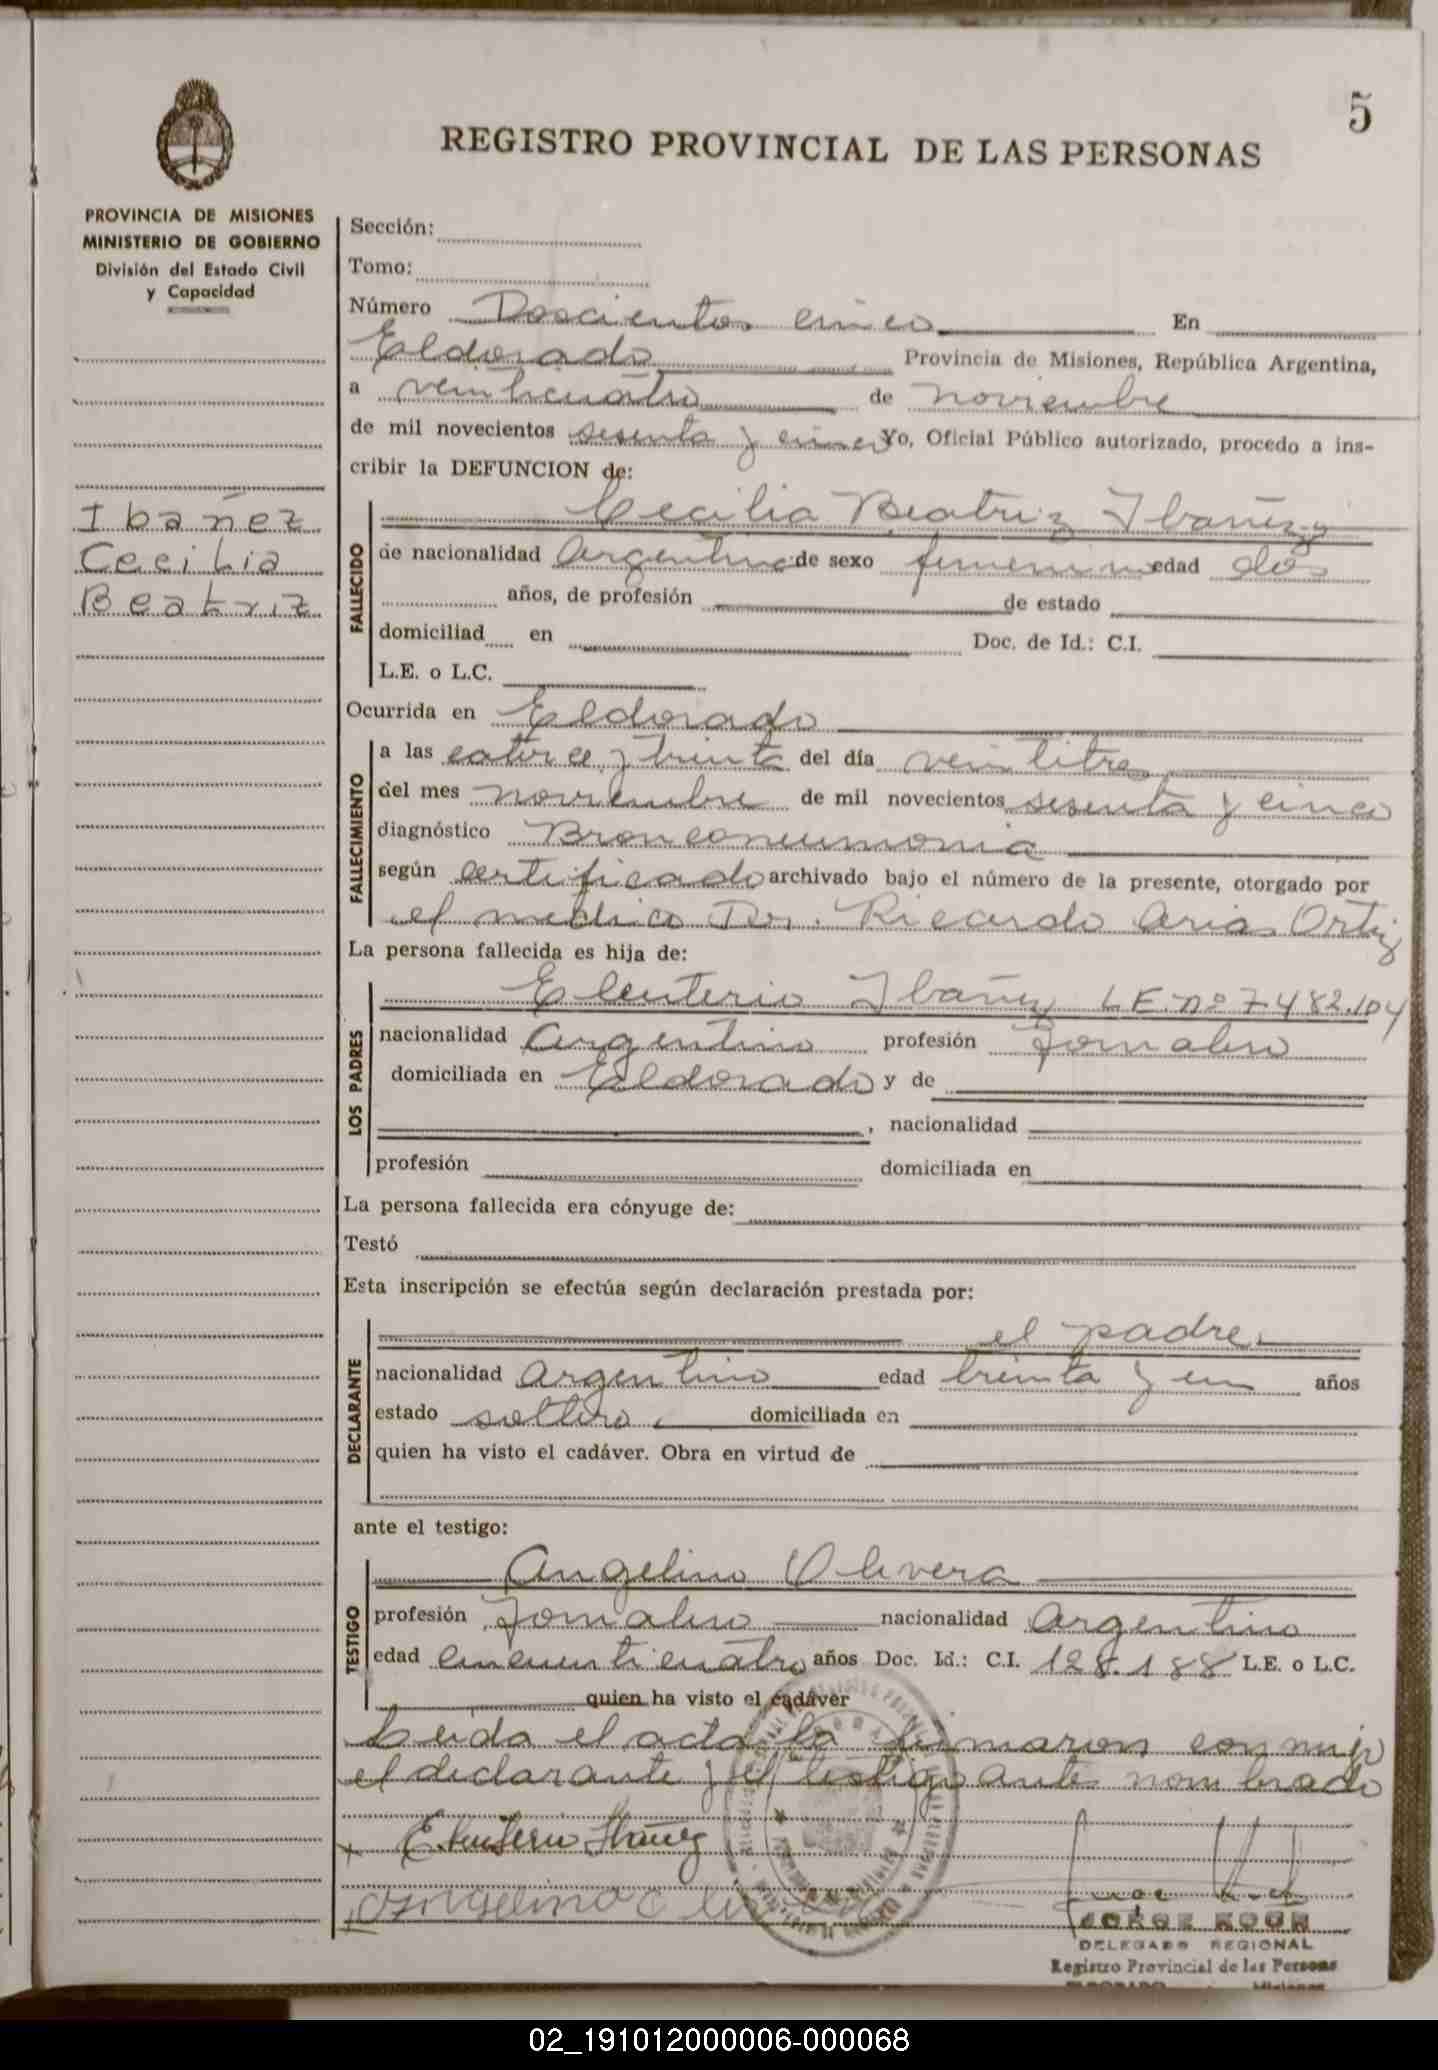 5
REGISTRO PROVINCIAL DE LAS PERSONAS
PROVINCIA DE MISIONES
MINISTERIO DE GOBIERNO
División del Estado Civil
y Capacidad
Ibañez
Cecilia
Beatriz
Sección:
Tomo:
Número Doscientos cinco En
Eldorado Provincia de Misiones, República Argentina,
a veinticuatro de noviembre
de mil novecientos sesenta y cinco Yo, Oficial Público autorizado, procedo a ins-
cribir la DEFUNCION de:
FALLECIDO
Cecilia Beatriz Ibañez
de nacionalidad Argentina de sexo femenino edad dos
años, de profesión de estado
domiciliad en Doc. de Id.: C.I.
L.E. o L.C.
Ocurrida en Eldorado
FALLECIMIENTO
a las catorce y treinta del día veintitres
del mes noviembre de mil novecientos sesenta y cinco
diagnóstico Bronconeumonia
según certificado archivado bajo el número de la presente, otorgado por
el médico Dr. Ricardo Arias Ortiz
La persona fallecida es hija de:
LOS PADRES
Eleuterio Ibañez L.E. nº 7.482.104
nacionalidad Argentino profesión Jornalero
domiciliada en Eldorado y de
, nacionalidad
profesión domiciliada en
La persona fallecida era cónyuge de:
Testó
Esta inscripción se efectúa según declaración prestada por:
DECLARANTE
el padre.
nacionalidad Argentino edad treinta y un años
estado soltero. domiciliada en
quien ha visto el cadáver. Obra en virtud de
ante el testigo:
TESTIGO
Angelino Olivera
profesión Jornalero nacionalidad Argentino
edad cincuenticuatro años Doc. Id.: C.I. 128.188 L.E. o L.C.
quien ha visto el cadáver
Leida el acta la firmaron conmigo
el declarante y el testigo antes nombrado
Eleuterio Ibañez
Angelino Olivera
JORGE KOCH
DELEGADO REGIONAL
Registro Provincial de las Personas
ELDORADO Misiones
02_191012000006-000068